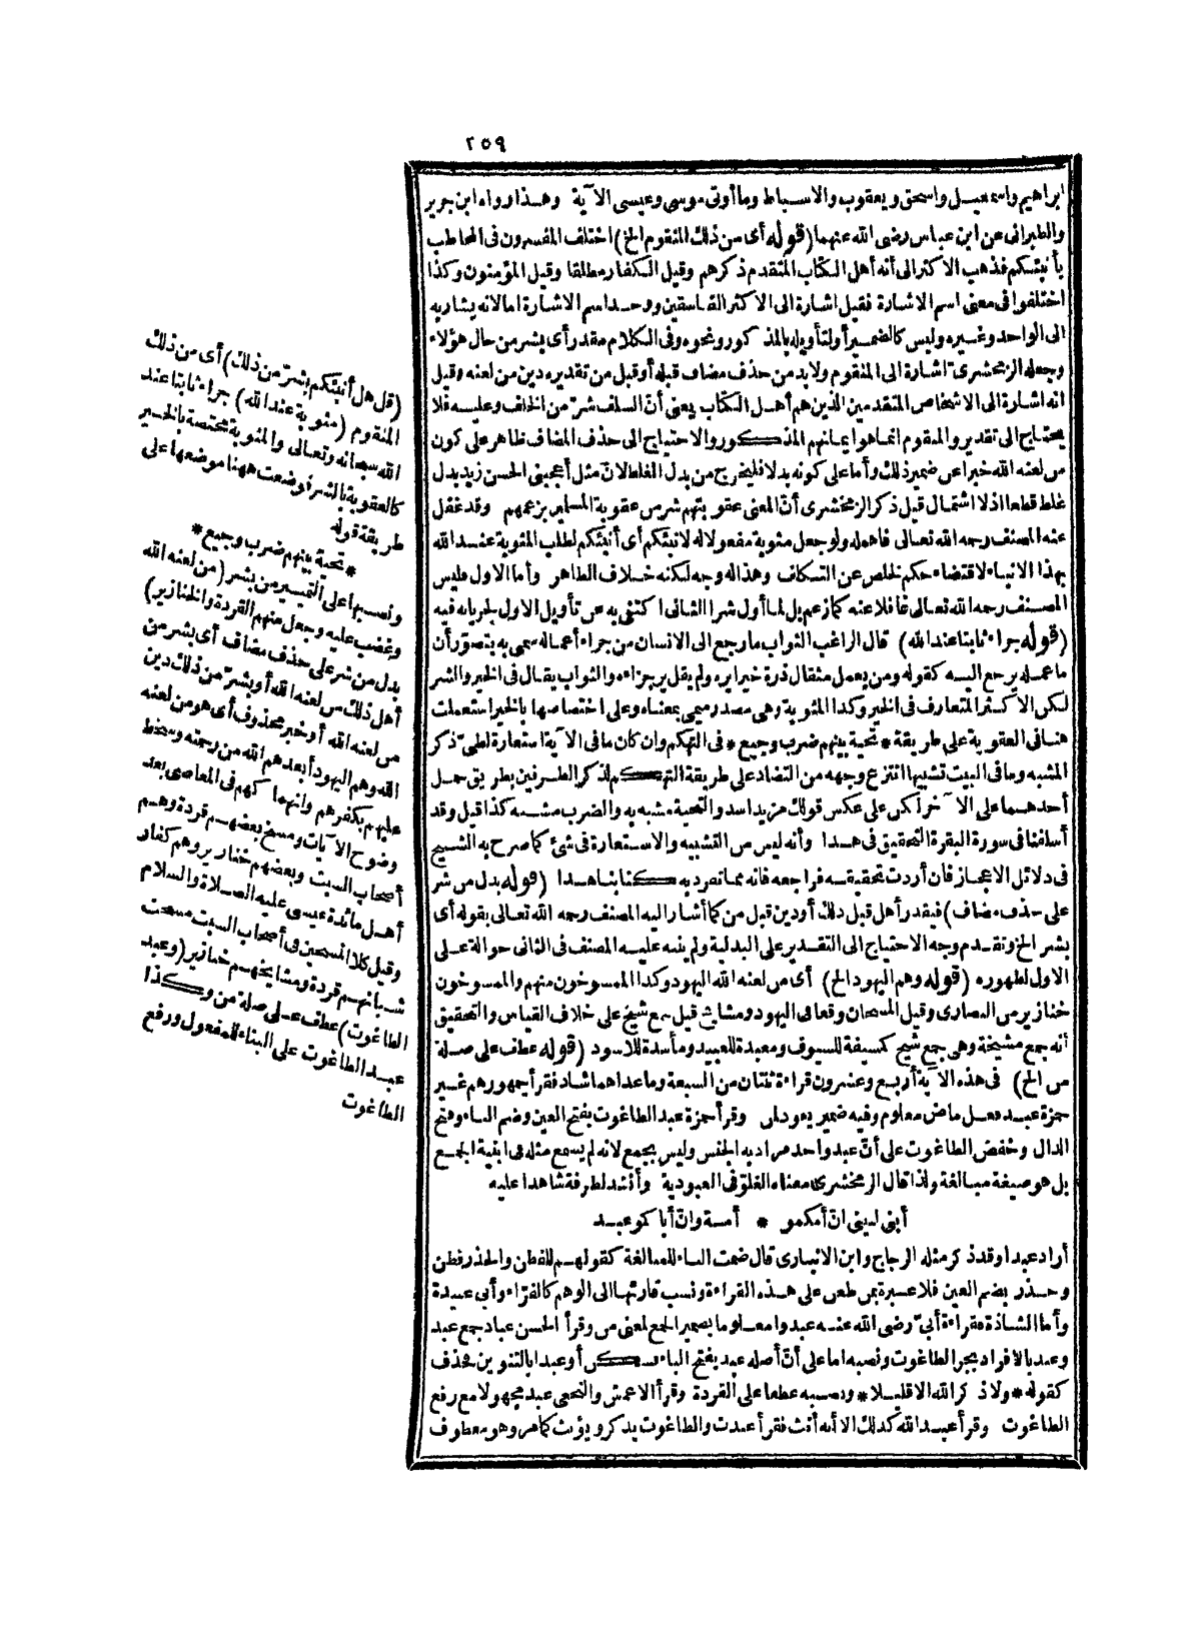 ٢٥٩
ابراهيم واسمعيل واسحق ويعقوب والاسباط وما أوتى موسى وعيسى الآية وهذا رواه ابن جرير
والطبرانى عن ابن عباس رضى الله عنهما (قوله أى من ذلك المنقوم الخ) اختلف المفسرون فى المخاطب
بأنبئكم فذهب الاكثر الى أنه أهل الكتاب المتقدم ذكرهم وقيل الكفار مطلقا وقيل المؤمنون وكذا
اختلفوا فى معنى اسم الاشارة فقيل اشارة الى الاكثر الفاسقين ووحد اسم الاشارة اما لانه يشار به
الى الواحد وغيره وليس كالضمير أو لتأويله بالمذكور ونحوه وفى الكلام مقدر أى بشر من حال هؤلاء
وجعله الزمخشرى اشارة الى المنقوم ولا بد من حذف مضاف قبله أو قبل من تقديره دين من لعنه وقيل
انه اشارة الى الاشخاص المتقدمين الذين هم أهل الكتاب يعنى أنّ السلف شرّ من الخلف وعليه فلا
يحتاج الى تقدير والمنقوم انما هو ايمانهم المذكور والاحتياج الى حذف المضاف ظاهر على كون
من لعنه الله خبرا عن ضمير ذلك وأما على كونه بدلا فليخرج من بدل الغلط لانّ مثل أعجبنى الحسن زيد بدل
غلط قطعا اذ لا اشتمال قيل ذكر الزمخشرى أنّ المعنى عقوبتهم شر من عقوبة المسلمين بزعمهم وقد غفل
عنه المصنف رحمه الله تعالى فاهمله ولو جعل مثوبة مفعولا له لانبئكم أى أنبئكم لطلب المثوبة عند الله
بهذا الانباء لاقتضاء حكم لخلص عن التكاف وهذا له وجه لكنه خلاف الظاهر وأما الاول فليس
المصنف رحمه الله تعالى غافلا عنه كما زعم بل لما أول شرا الثانى اكتفى به عن تأويل الاول لجريانه فيه
(قوله جزاء ثابتا عند الله) قال الراغب الثواب ما رجع الى الانسان من جزاء أعماله سمى به بتصوّر أن
ما عمله يرجع اليه كقوله ومن يعمل مثقال ذرة خيرا يره ولم يقل ير جزاءه والثواب يقال فى الخير والشر
لكن الاكثر المتعارف فى الخير وكذا المثوبة وهى مصدر ميمى بمعناه وعلى اختصاصها بالخير استعملت
هنا فى العقوبة على طريقة * تحية بينهم ضرب وجيع * فى التهكم وان كان ما فى الآية استعارة لطىّ ذكر
المشبه وما فى البيت تشبيها انتزع وجهه من التضاد على طريقة التهكم لذكر الطرفين بطريق حمل
أحدهما على الآخر لكن على عكس قولك هو زيد اسد والتحية مشبه به والضرب مشبه كذا قيل وقد
أسلفنا فى سورة البقرة التحقيق فى هذا وأنه ليس من التشبيه والاستعارة فى شئ كما صرح به الشيخ
فى دلائل الاعجاز فان أردت تحقيقه فراجعه فانه مما تفرد به كتابنا هذا (قوله بدل من شر
على حذف مضاف) فيقدر أهل قبل ذلك أو دين قبل من كما أشار اليه المصنف رحمه الله تعالى بقوله أى
بشر الخ وتقدم وجه الاحتياج الى التقدير على البدلية ولم ينبه عليه المصنف فى الثانى حوالة على
الاول لظهوره (قوله وهم اليهود الخ) أى من لعنه الله اليهود وكذا الممسوخون منهم والممسوخون
خنازير من النصارى وقيل المسخان وقعا فى اليهود ومشايخ قيل جمع شيخ على خلاف القياس والتحقيق
أنه جمع مشيخة وهى جمع شيخ كمسيفة للسيوف ومعبدة للعبيد ومأسدة للاسود (قوله عطف على صلة
من الخ) فى هذه الآية أربع وعشرون قراءة ثنتان من السبعة وما عداهما شاذ فقرأ جمهورهم غير
حمزة عبد فعل ماض معلوم وفيه ضمير يعود لمن وقرأ حمزة عبد الطاغوت بفتح العين وضم الباء وفتح
الدال وخفض الطاغوت على أنّ عبد واحد مراد به الجنس وليس بجمع لانه لم يسمع مثله فى ابنية الجمع
بل هو صيغة مبالغة ولذا قال الزمخشرى معناه الغلوّ فى العبودية وأنشد لطرفة شاهدا عليه
أبنى لبينى انّ أمكمو * أمة وانّ أباكمو عبد
أراد عبدا وقد ذكر مثله الزجاج وابن الانبارى قال ضمت الباء للمبالغة كقولهم للفطن والحذر فطن
وحذر بضم العين فلا عبرة بمن طعن على هذه القراءة ونسب قارئها الى الوهم كالفرّاء وأبى عبيدة
وأما الشاذة فقراءة أبىّ رضى الله عنه عبدوا معلوما بضمير الجمع لمعنى من وقرأ الحسن عباد جمع عبد
وعبد بالافراد بجر الطاغوت ونصبه اما على أنّ أصله عبد بفتح الباء فسكن أو عبدا بالتنوين فحذف
كقوله * ولا ذاكر الله الا قليلا * ونصبه عطفا على القردة وقرأ الاعمش والنخعى عبد مجهولا مع رفع
الطاغوت وقرأ عبد الله كذلك الا أنه أنث فقرأ عبدت والطاغوت يذكر ويؤنث كما مر وهو معطوف
(قل هل أنبئكم بشرّ من ذلك) أى من ذلك
المنقوم (مثوبة عند الله) جزاء ثابتا عند
الله سبحانه وتعالى والمثوبة مختصة بالخير
كالعقوبة بالشر فوضعت ههنا موضعها على
طريقة قوله
* تحية بينهم ضرب وجيع *
ونصبها على التمييز من بشر (من لعنه الله
وغضب عليه وجعل منهم القردة والخنازير)
بدل من شر على حذف مضاف أى بشر من
أهل ذلك من لعنه الله أو بشرّ من ذلك دين
من لعنه الله أو خبر محذوف أى هو من لعنه
الله وهم اليهود أبعدهم الله من رحمته وسخط
عليهم بكفرهم وانهماكهم فى المعاصى بعد
وضوح الآيات ومسخ بعضهم قردة وهم
أصحاب السبت وبعضهم خنازير وهم كفار
أهل مائدة عيسى عليه الصلاة والسلام
وقيل كلا المسخين فى أصحاب السبت مسخت
شبانهم قردة ومشايخهم خنازير (وعبد
الطاغوت) عطف على صلة من وكذا
عبد الطاغوت على البناء للمفعول ورفع
الطاغوت